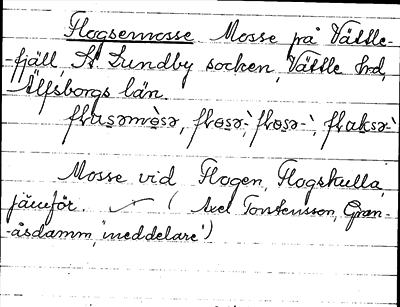 Flogsemosse Mosse på Vättle-
-fjäll, St Lundby socken, Vättle hrd,
Älfsborgs län.
Mosse vid Flogen, Flogskulla,
jämför. ( Axel Torstensson, Gran-
-åsdamm, meddelare')